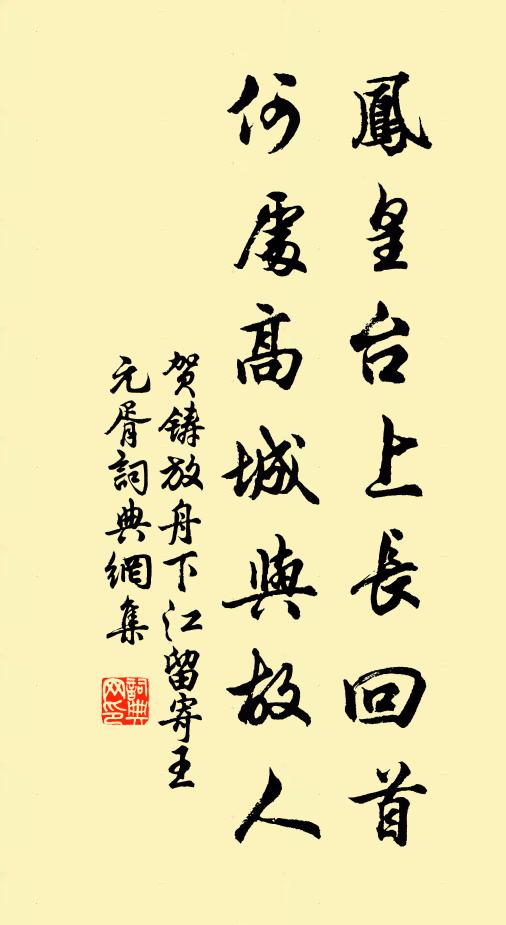 鳳皇台上長回首
何處高城與故人
贺鑄放舟下江留寄王
元胥詞典網集
詞典
网印